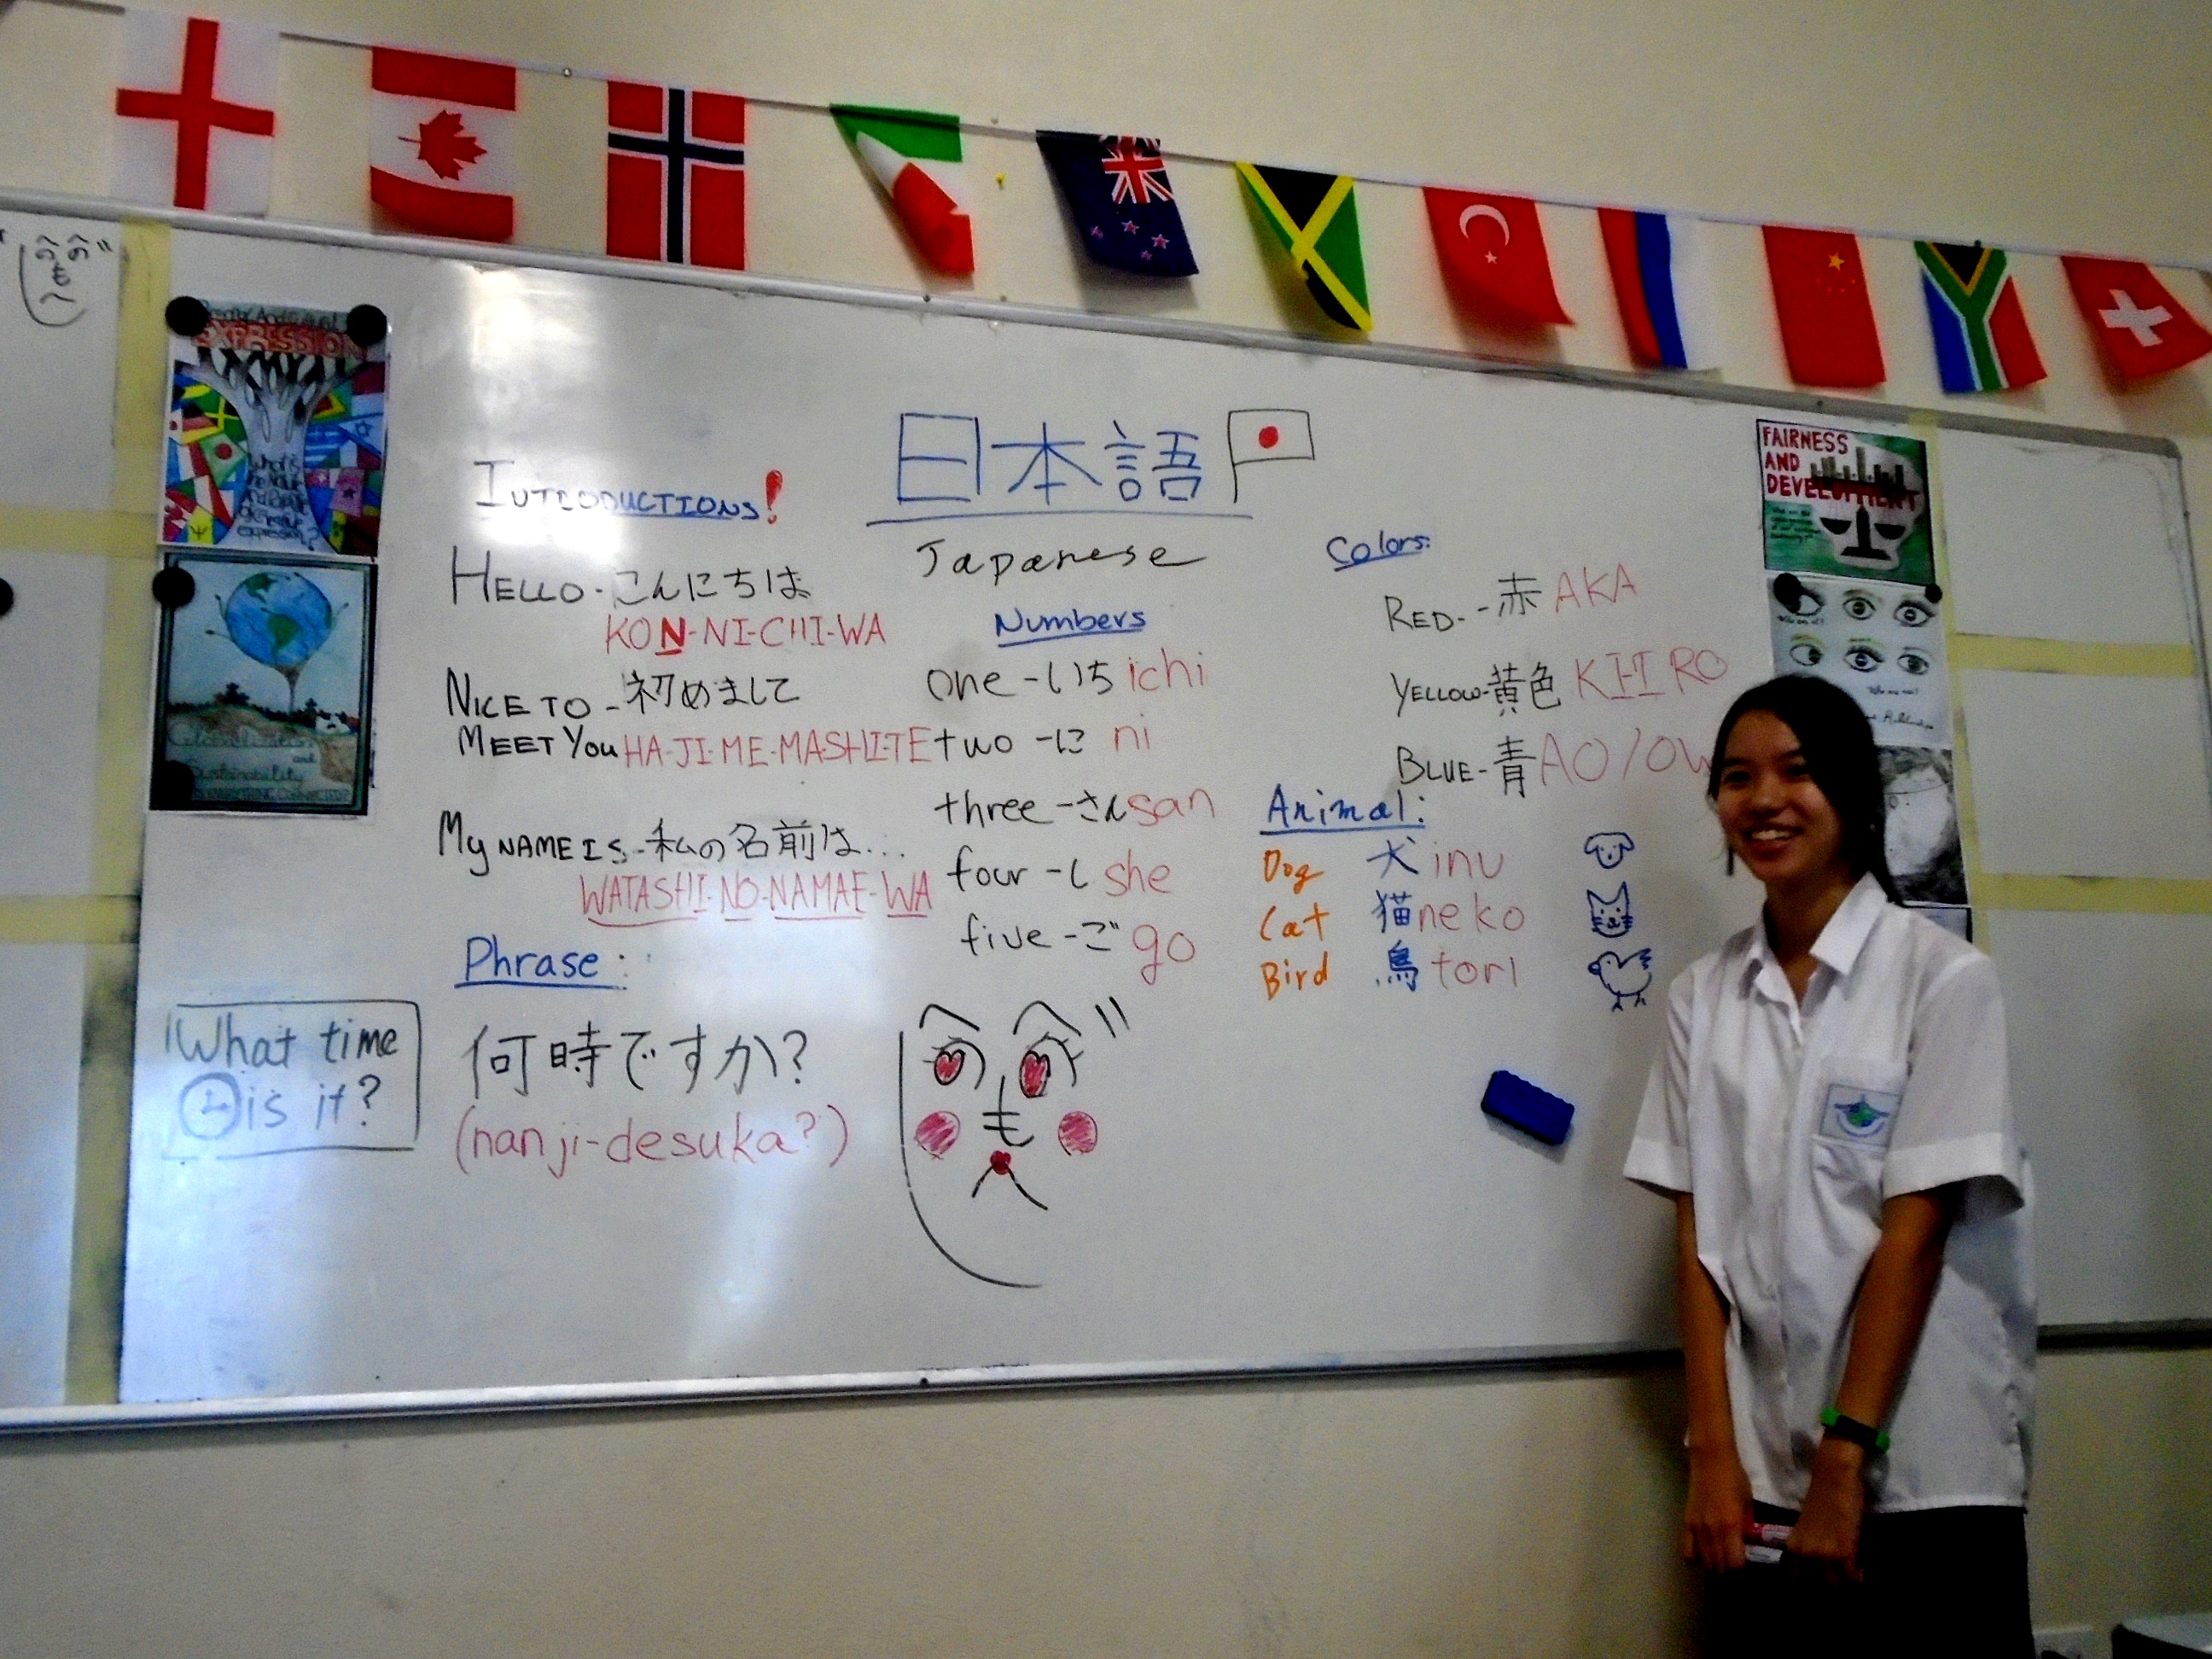 日本語
Japanese
INTRODUCTIONS!
HELLO - こんにちは
KON-NI-CHI-WA
NICE TO - 初めまして
MEET YOU HA-JI-ME-MASHI-TE
MY NAME IS - 私の名前は...
WATASHI-NO-NAMAE-WA
Phrase:
What time
is it?
何時ですか?
(nanji-desuka?)
Numbers
one - いち ichi
two - に ni
three - さん san
four - し she
five - ご go
へ へ
の の
も
へ
Colors:
RED - 赤 AKA
YELLOW - 黄色 KI-I RO
BLUE - 青 AO/OW
Animal:
Dog 犬 inu
Cat 猫 neko
Bird 鳥 tori
EXPRESSION
What is
expression?
Globalization
and
Sustainability
FAIRNESS
AND
DEVELOPMENT